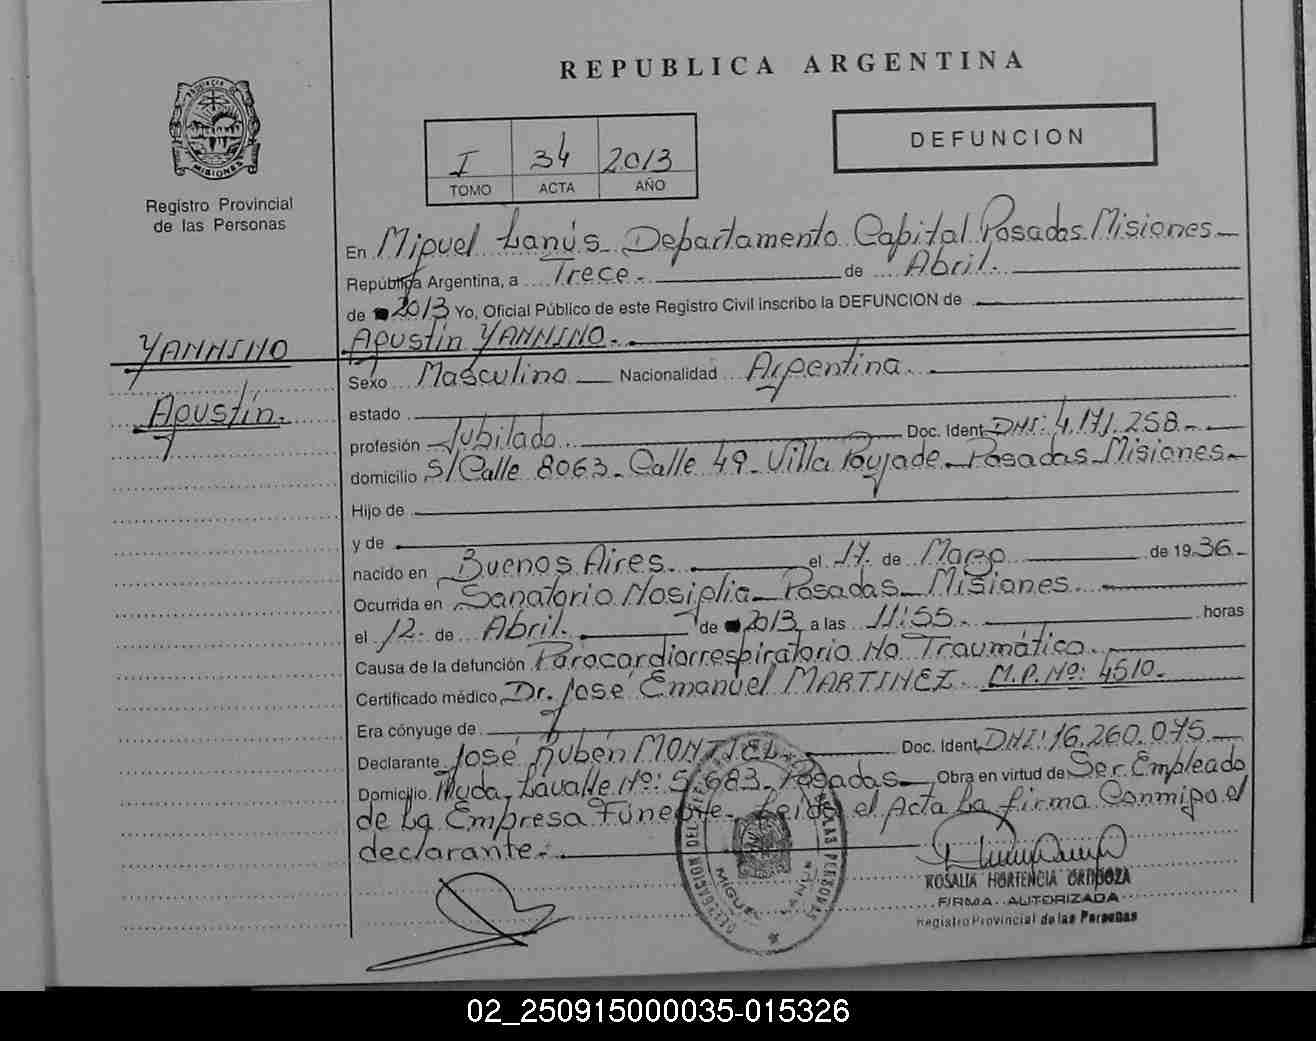 REPUBLICA ARGENTINA
DEFUNCION
I 34 2013
TOMO ACTA AÑO
PROVINCIA DE
MISIONES
Registro Provincial
de las Personas
En Miguel Lanús Departamento Capital Posadas Misiones
República Argentina, a Trece de Abril.
de 2013 Yo, Oficial Público de este Registro Civil inscribo la DEFUNCION de
YANNINO
Agustín YANNINO.
Agustín.
Sexo Masculino Nacionalidad Argentina.
estado
profesión Jubilado Doc. Ident. DNI: 4.171.258.
domicilio S/Calle 8063 Calle 49 Villa Poujade Posadas Misiones
Hijo de
y de
nacido en Buenos Aires. el 17. de Marzo de 1936
Ocurrida en Sanatorio Posadas Misiones
el 12. de Abril. de 2013 a las 11:55 horas
Causa de la defunción Parocardiorrespiratorio No Traumático.
Certificado médico Dr. José Emanuel MARTINEZ. M.P. Nº: 4510.
Era cónyuge de
Declarante José Rubén MONTIEL Doc. Ident. DNI: 16.260.075
Domicilio Avda. Lavalle Nº: 5.683 Posadas Obra en virtud de Ser Empleado
de La Empresa Fúnebre. Leída el Acta La firma Conmigo el
declarante.
DELEGACION DEL REGISTRO DE LAS PERSONAS
MIGUEL LANUS
ROSALIA HORTENCIA ORDOOZA
FIRMA AUTORIZADA
Registro Provincial de las Personas
02_250915000035-015326